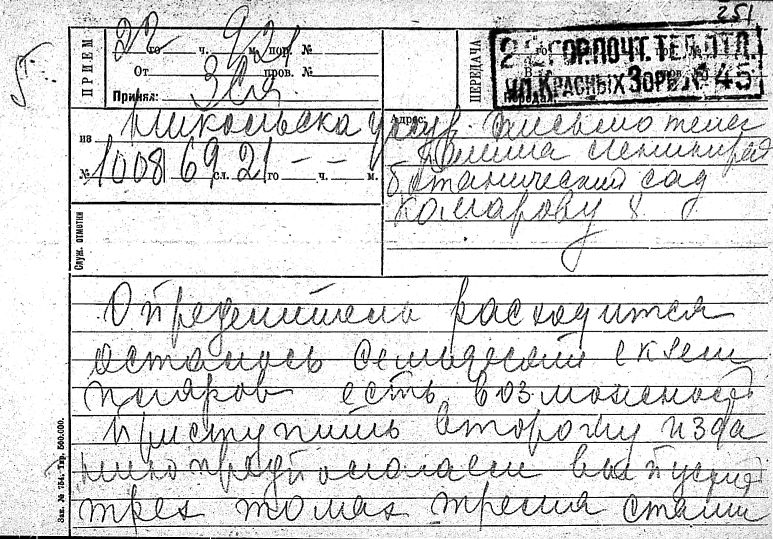 251
ПРИЕМ
22 го ч. 9 м. пор. № 21
От пров. №
Принял: Зоя
ПЕРЕДАЧА
22 ГОР.ПОЧТ.ТЕЛ.ОТД.
УЛ. КРАСНЫХ ЗОРЬ № 45
из Никольска усур.
№ 1008 69 сл. 21 го - ч. - м.
Адрес: письмо теле
грамма Ленинград
ботанический сад
Комарову
Служ. отметки
Определитель расходится
осталось семьдесят экзем
пляров есть возможность
приступить второму изда
нию предполагаем выпустить
трех томах тремя стами
Зак. № 754. Тир. 500.000.